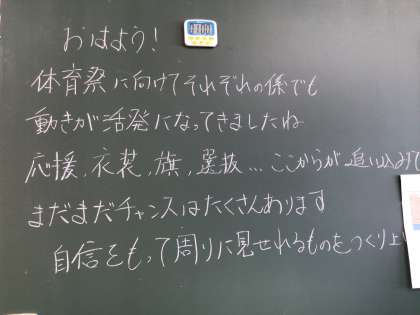 おはよう！
体育祭に向けてそれぞれの係でも
動きが活発になってきましたね
応援，衣装，旗，選抜…ここからが追い込みで
まだまだチャンスはたくさんあります
自信をもって周りに見せれるものをつくり上